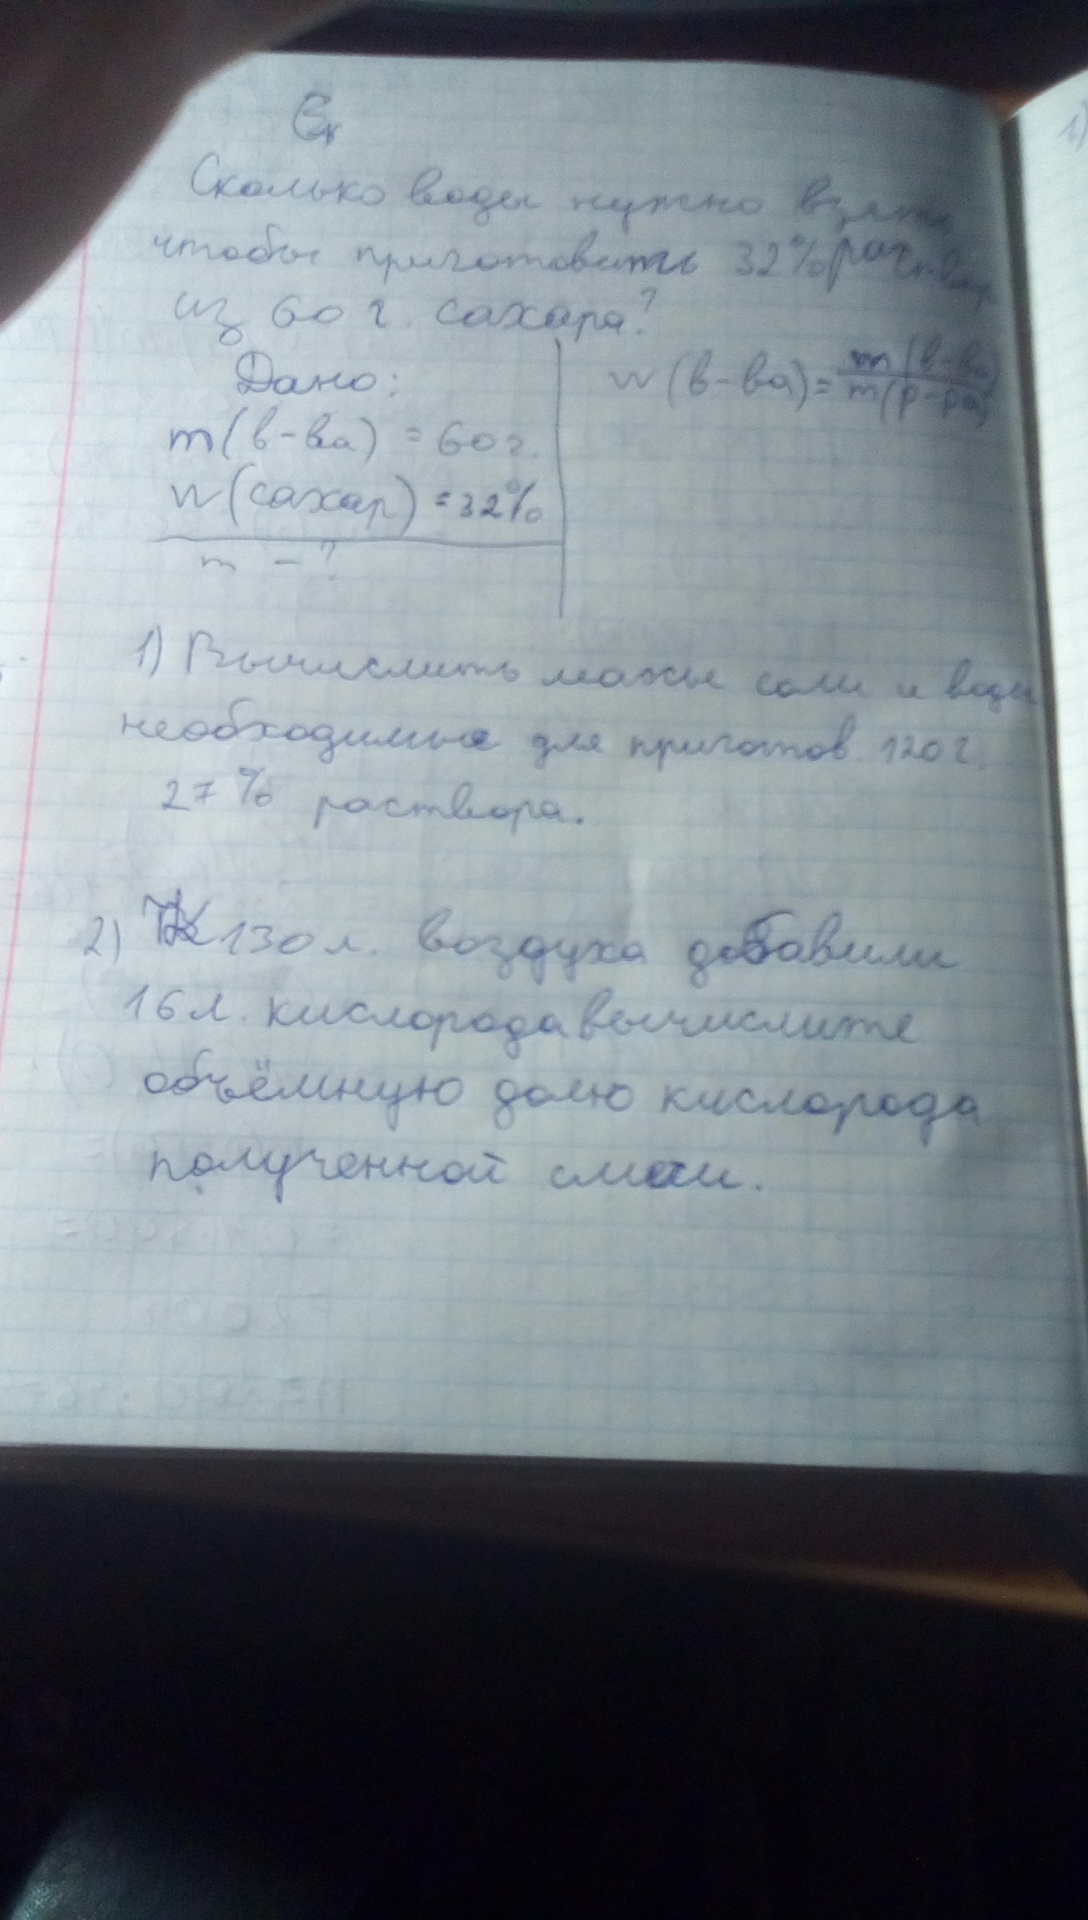 Сколько воды нужно взять
чтобы приготовить 32% раствор
из 60 г. сахара?
Дано:
m(в-ва) = 60г.
w(сахар) = 32%
m - ?
w(в-ва) = m(в-ва) / m(р-ра)
1) Вычислить массы соли и воды
необходимые для приготов. 120 г.
27% раствора.
2) К 130 л. воздуха добавили
16 л. кислорода вычислите
объёмную долю кислорода
полученной смеси.
1)